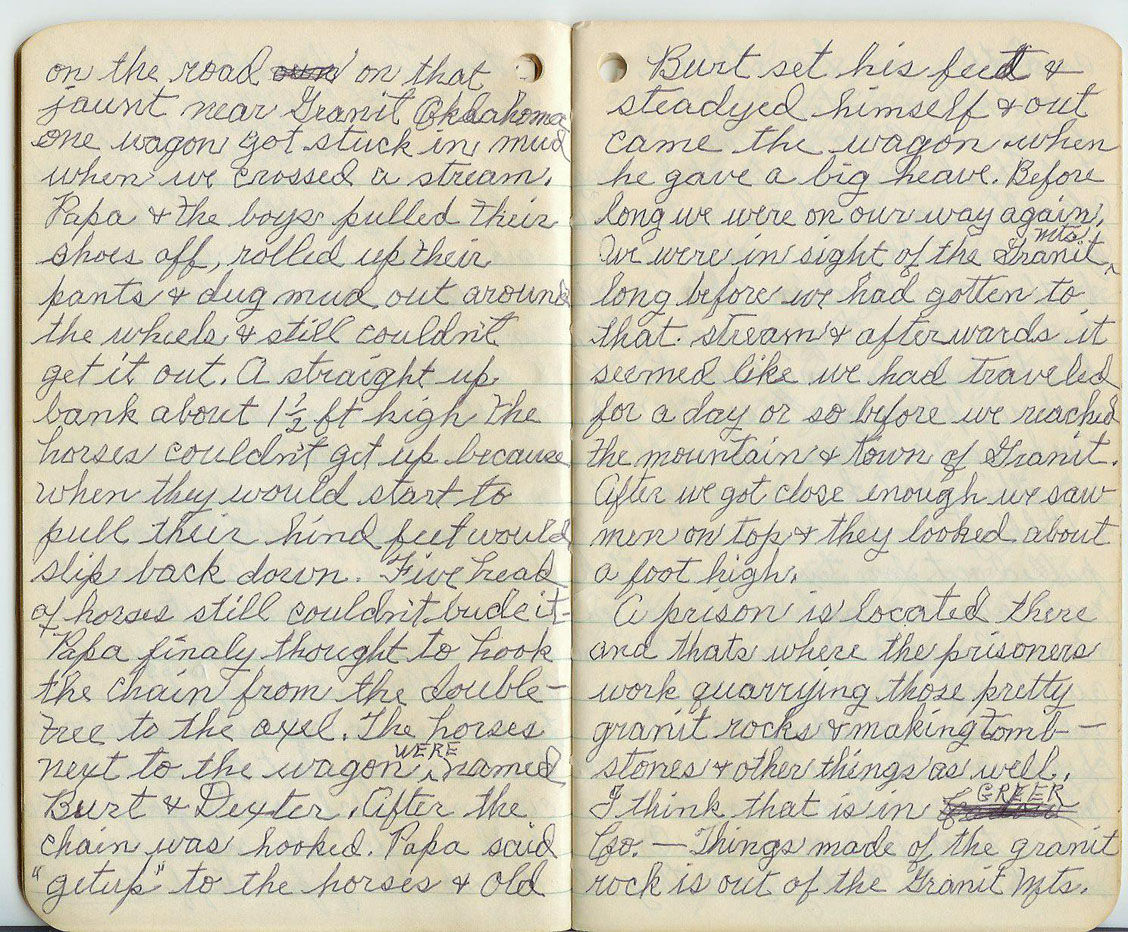 on the road on that
jaunt near Granit Oklahoma
one wagon got stuck in mud
when we crossed a stream.
Papa & the boys pulled their
shoes off, rolled up their
pants & dug mud out around
the wheels & still couldn't
get it out. A straight up
bank about 1½ ft high the
horses couldn't get up because
when they would start to
pull their hind feet would
slip back down. Five head
of horses still couldn't bude it-
Papa finaly thought to hook
the chain from the double-
tree to the axel. The horses
next to the wagon WERE named
Burt & Dexter. After the
chain was hooked. Papa said
"getup" to the horses & Old
Burt set his feet &
steadyed himself & out
came the wagon when
he gave a big heave. Before
long we were on our way again.
We were in sight of the Granit Mts.
long before we had gotten to
that stream & afterwards it
seemed like we had traveled
for a day or so before we reached
the mountain & town of Granit.
After we got close enough we saw
men on top & they looked about
a foot high.
A prison is located there
and thats where the prisoners
work quarrying those pretty
granit rocks & making tomb-
stones & other things as well.
I think that is in GREER
Co. — Things made of the granit
rock is out of the Granit Mts.